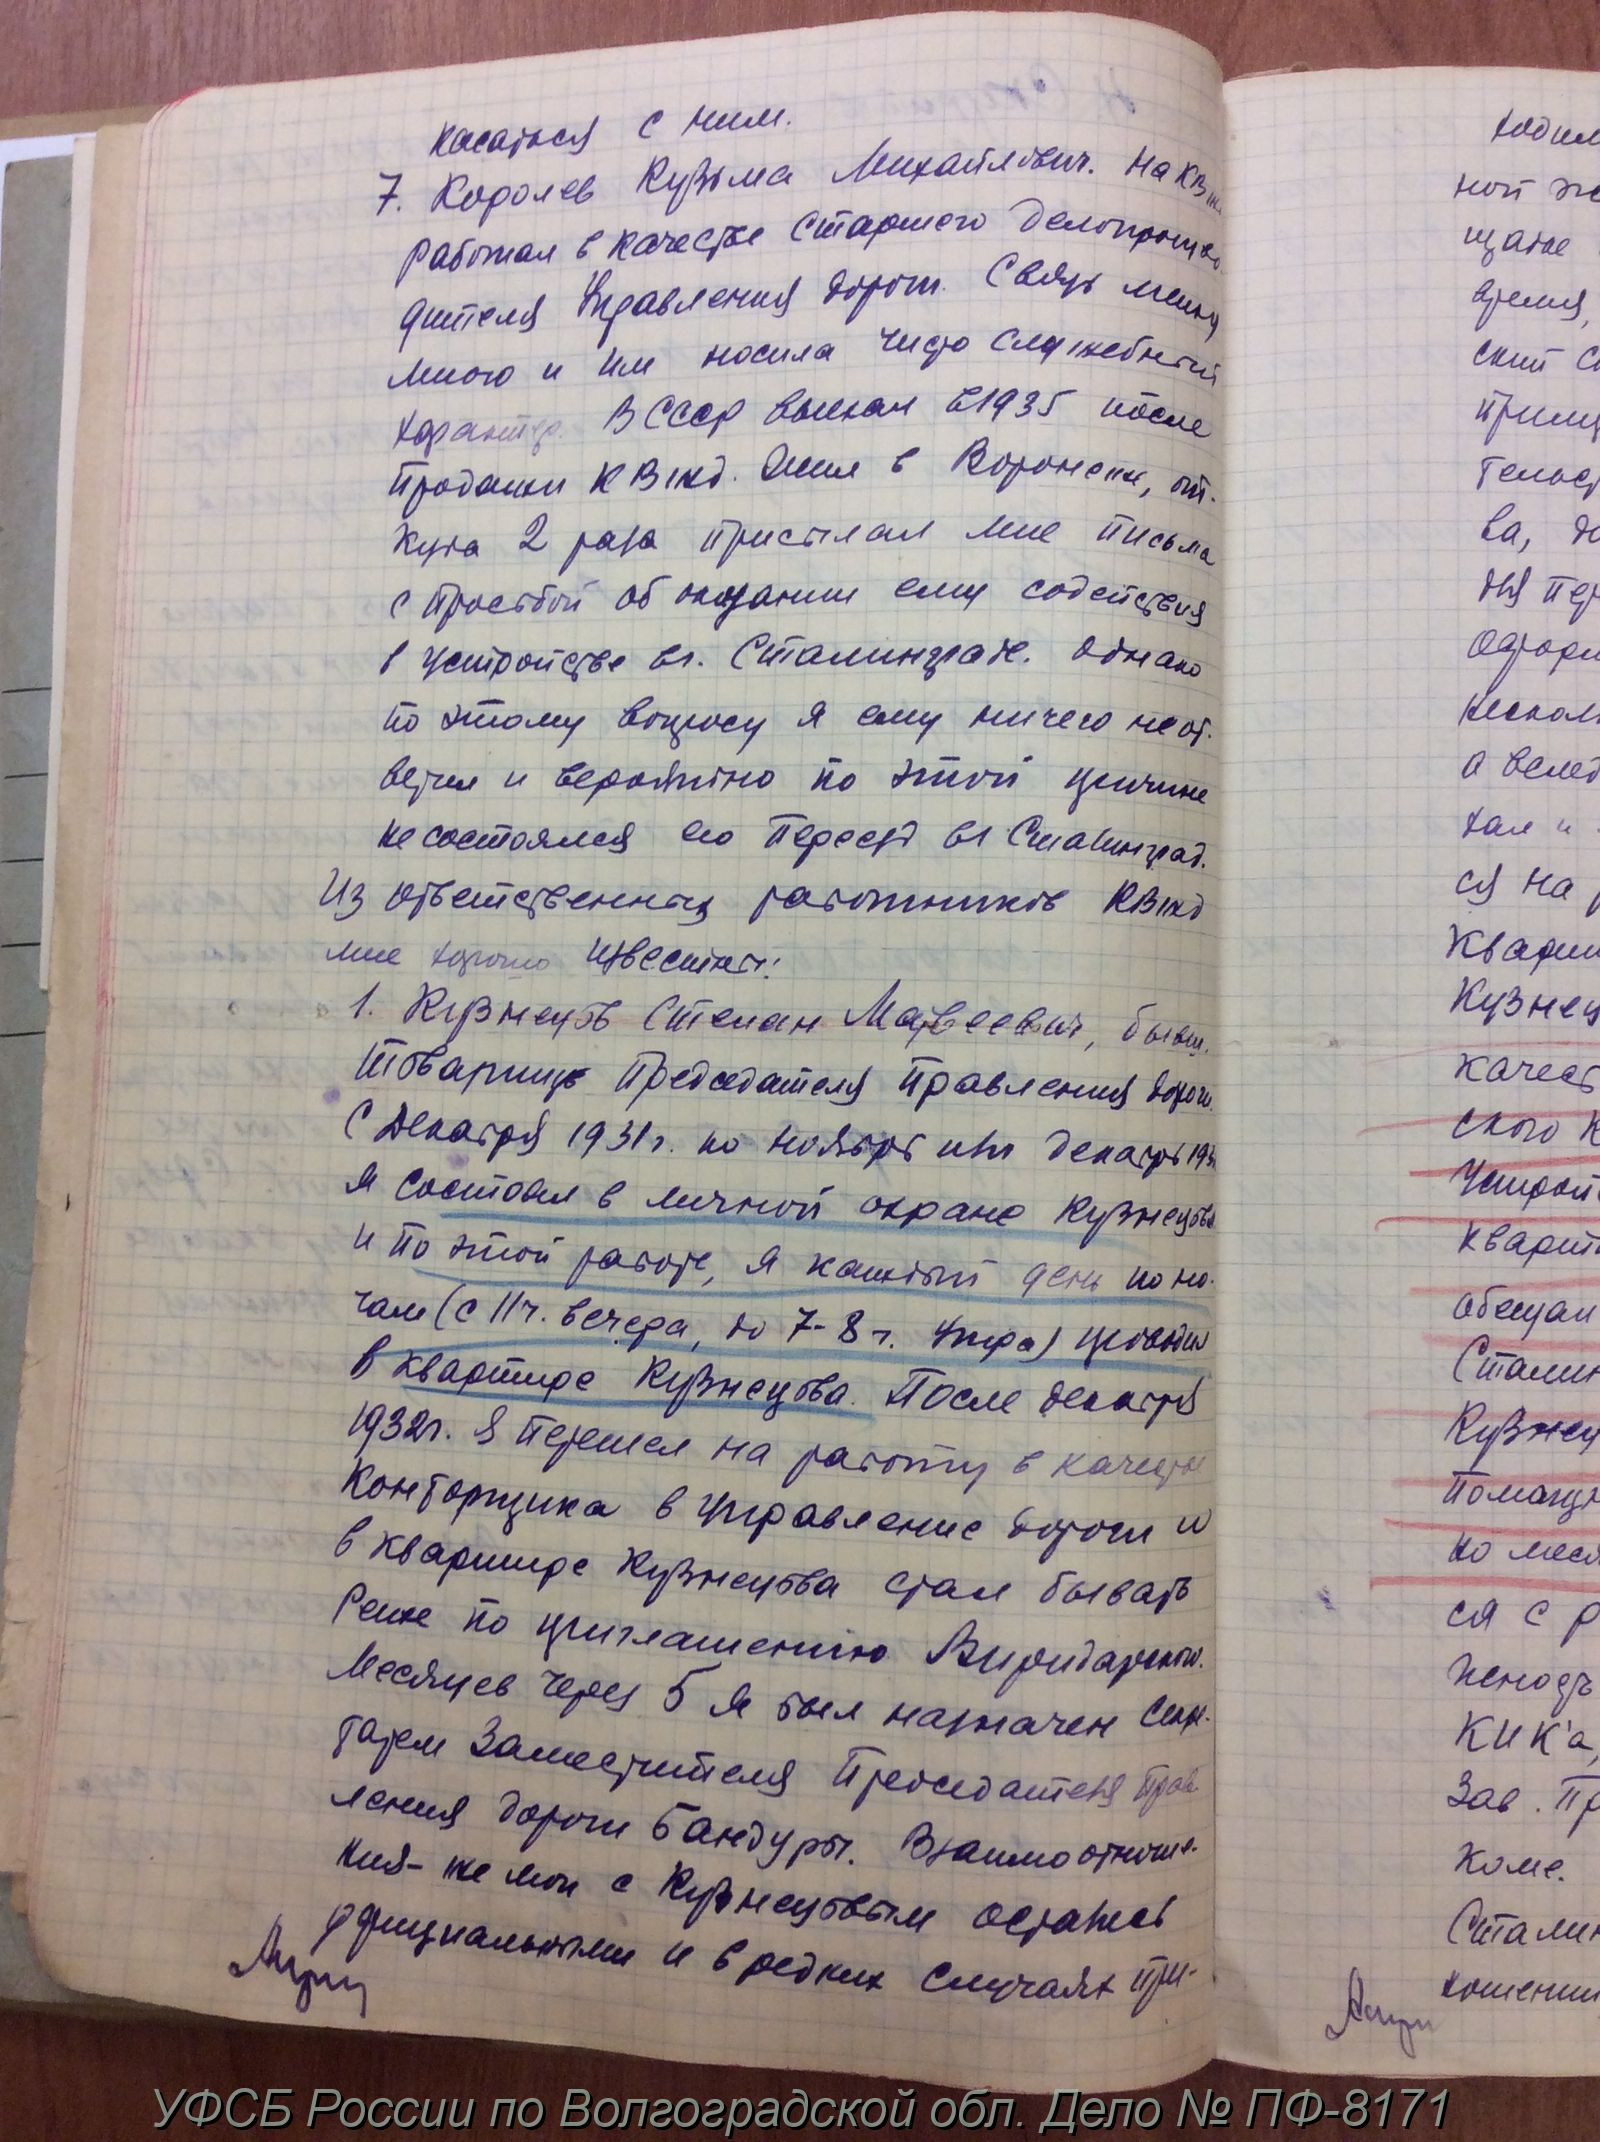 касаться с ним.
7. Королев Кузьма Михайлович. На КВжд
работал в качестве старшего делопроизво-
дителя Управления дорог. Связь между
мною и им носила чисто служебный
характер. В СССР выехал в 1935 после
продажи КВжд. Жил в Воронеже, от-
куда 2 раза присылал мне письма
с просьбой об оказании ему содействия
в устройстве в г. Сталинграде. Однако
по этому вопросу я ему ничего не от-
ветил и вероятно по этой причине
не состоялся его переезд в г Сталинград.
Из ответственных работников КВжд
мне хорошо известны:
1. Кузнецов Степан Матвеевич, бывш.
Товарищ Председателя Правления дороги.
С Декабря 1931 г. по Ноябрь или декабрь
я состоял в личной охране Кузнецова
и по этой работе, я каждый день по но-
чам (с 11 ч. вечера, до 7-8 ч. утра) проводил
в квартире Кузнецова. После декабря
1932 г. я перешел на работу в качестве
Конторщика в Управление дороги и
в квартире Кузнецова стал бывать
реже по приглашению
Месяцев через 5 я был назначен Секре-
тарем Заместителя Председателя Прав
ления дороги Бандуры. Взаимоотноше-
ния-же мои с Кузнецовым остались
официальными и в редких случаях при-
ходил
ной
щание
время,
ский
ва,
ся на
Кварти
Кузнец
качест
ского К
Устрой
кварти
обещал
Сталин
Кузнец
Помощн
ся с р
КИК'а,
Зав. Пр
коме.
Сталин
УФСБ России по Волгоградской обл. Дело № ПФ-8171